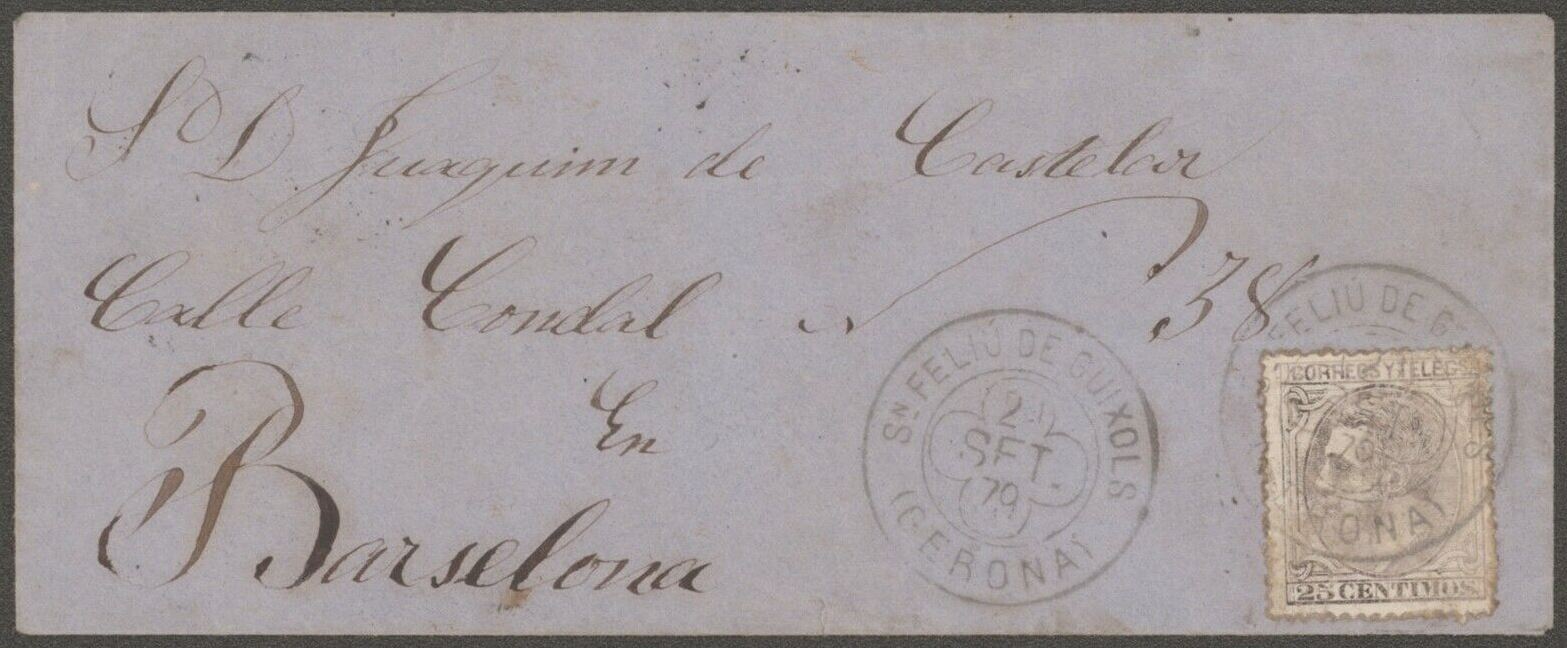 Sr D Juaquim de Castelar
Calle Condal N 38
En
Barselona
SN FELIÚ DE GUIXOLS
SET.
79
(GERONA)
FELIÚ DE G
LS
79
ONA)
CORREOS Y TELEGS
25 CENTIMOS